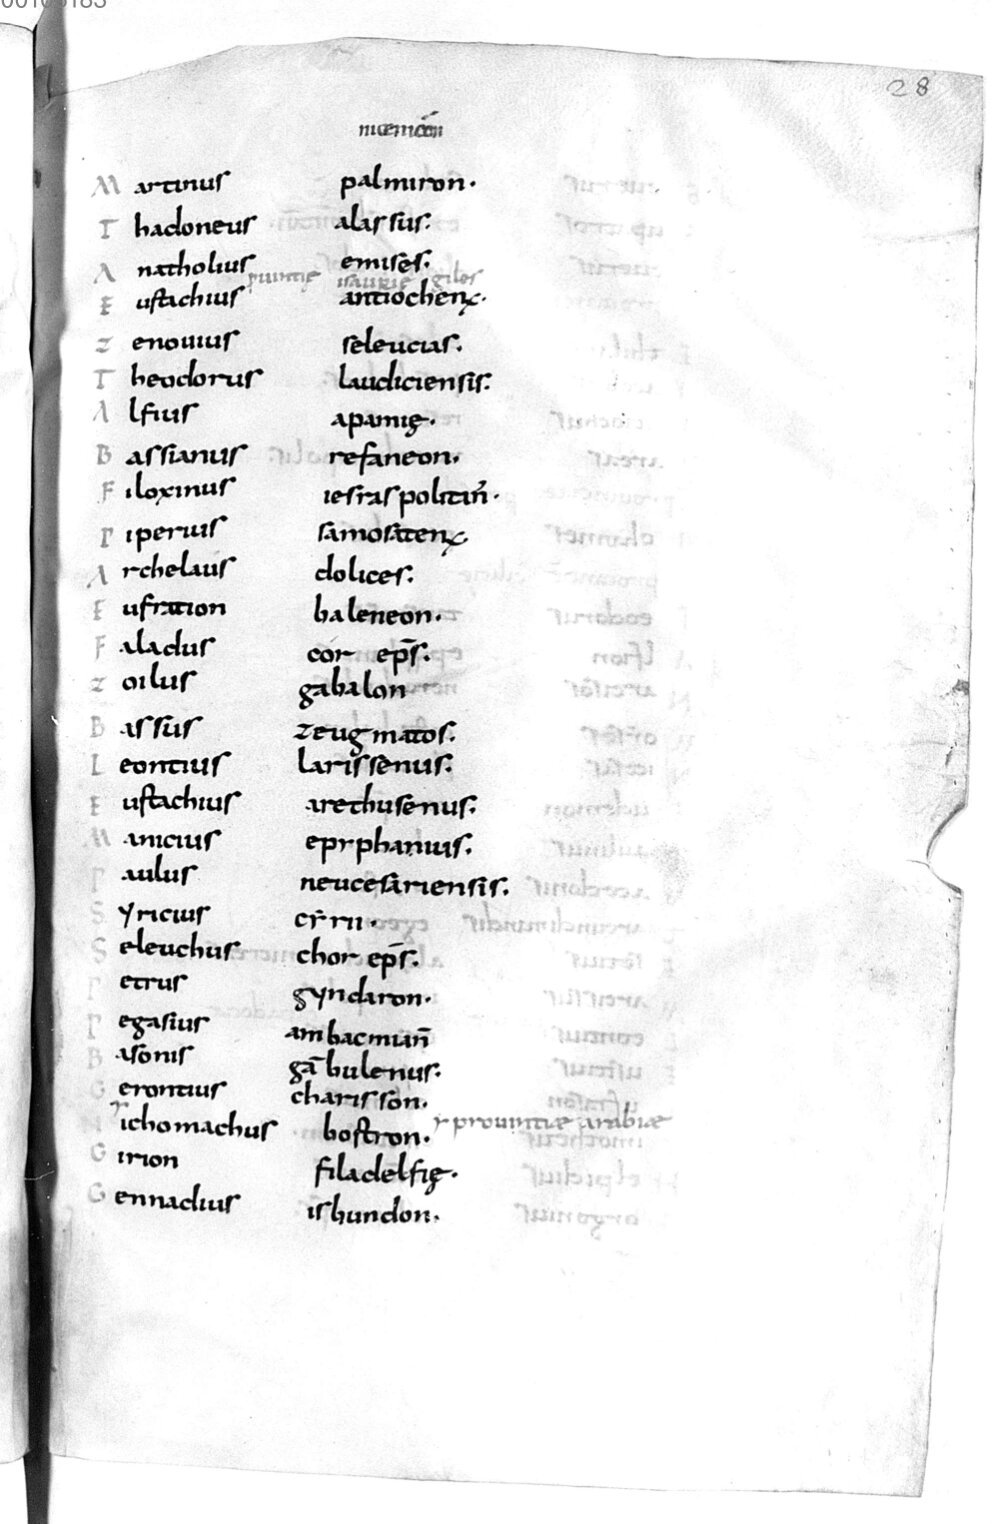 28
Martinus palmiron.
Thadoneus alassus.
Anatholius emises.
puintie isaurie
Eustachius antiochen.
Zenouius seleucias.
Theodorus laudiciensis.
Alfius apamię.
Bassianus refaneon.
Filoxinus iesraspolitan̄.
Piperuis samosaten.
Archelaus dolices.
Eufration baleneon.
Faladus cor ep̄s.
Zoilus gabalon
Bassus zeugmatos.
Leontius larissenus.
Eustachius arethusenus.
Manicius epyphanius.
Paulus neucesariensis.
Syricius cyrrii.
Seleuchus chor ep̄s.
Petrus gyndaron.
Pegasius ambacmian̄
Basonis gābulenus.
Gerontius charisson.
Nichomachus bostron. prouintiæ arabiæ
Girion filadelfię.
Gennadius isbundon.